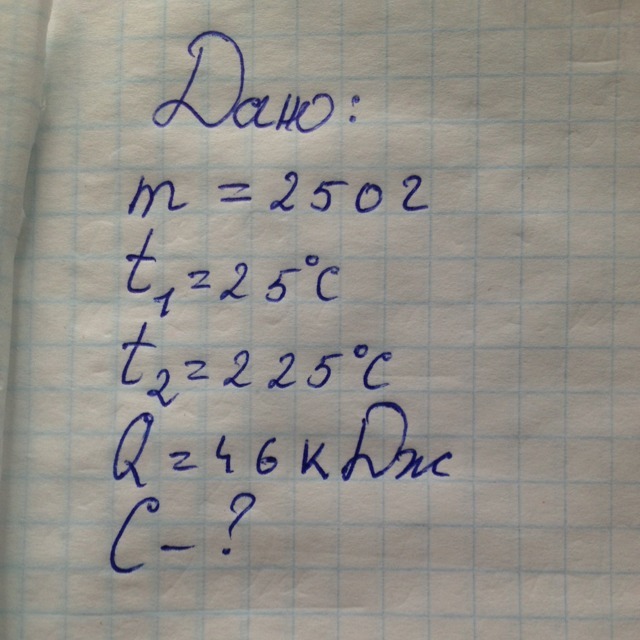 Дано:
m = 250г
t₁=25°C
t₂=225°C
Q=46 кДж
C – ?